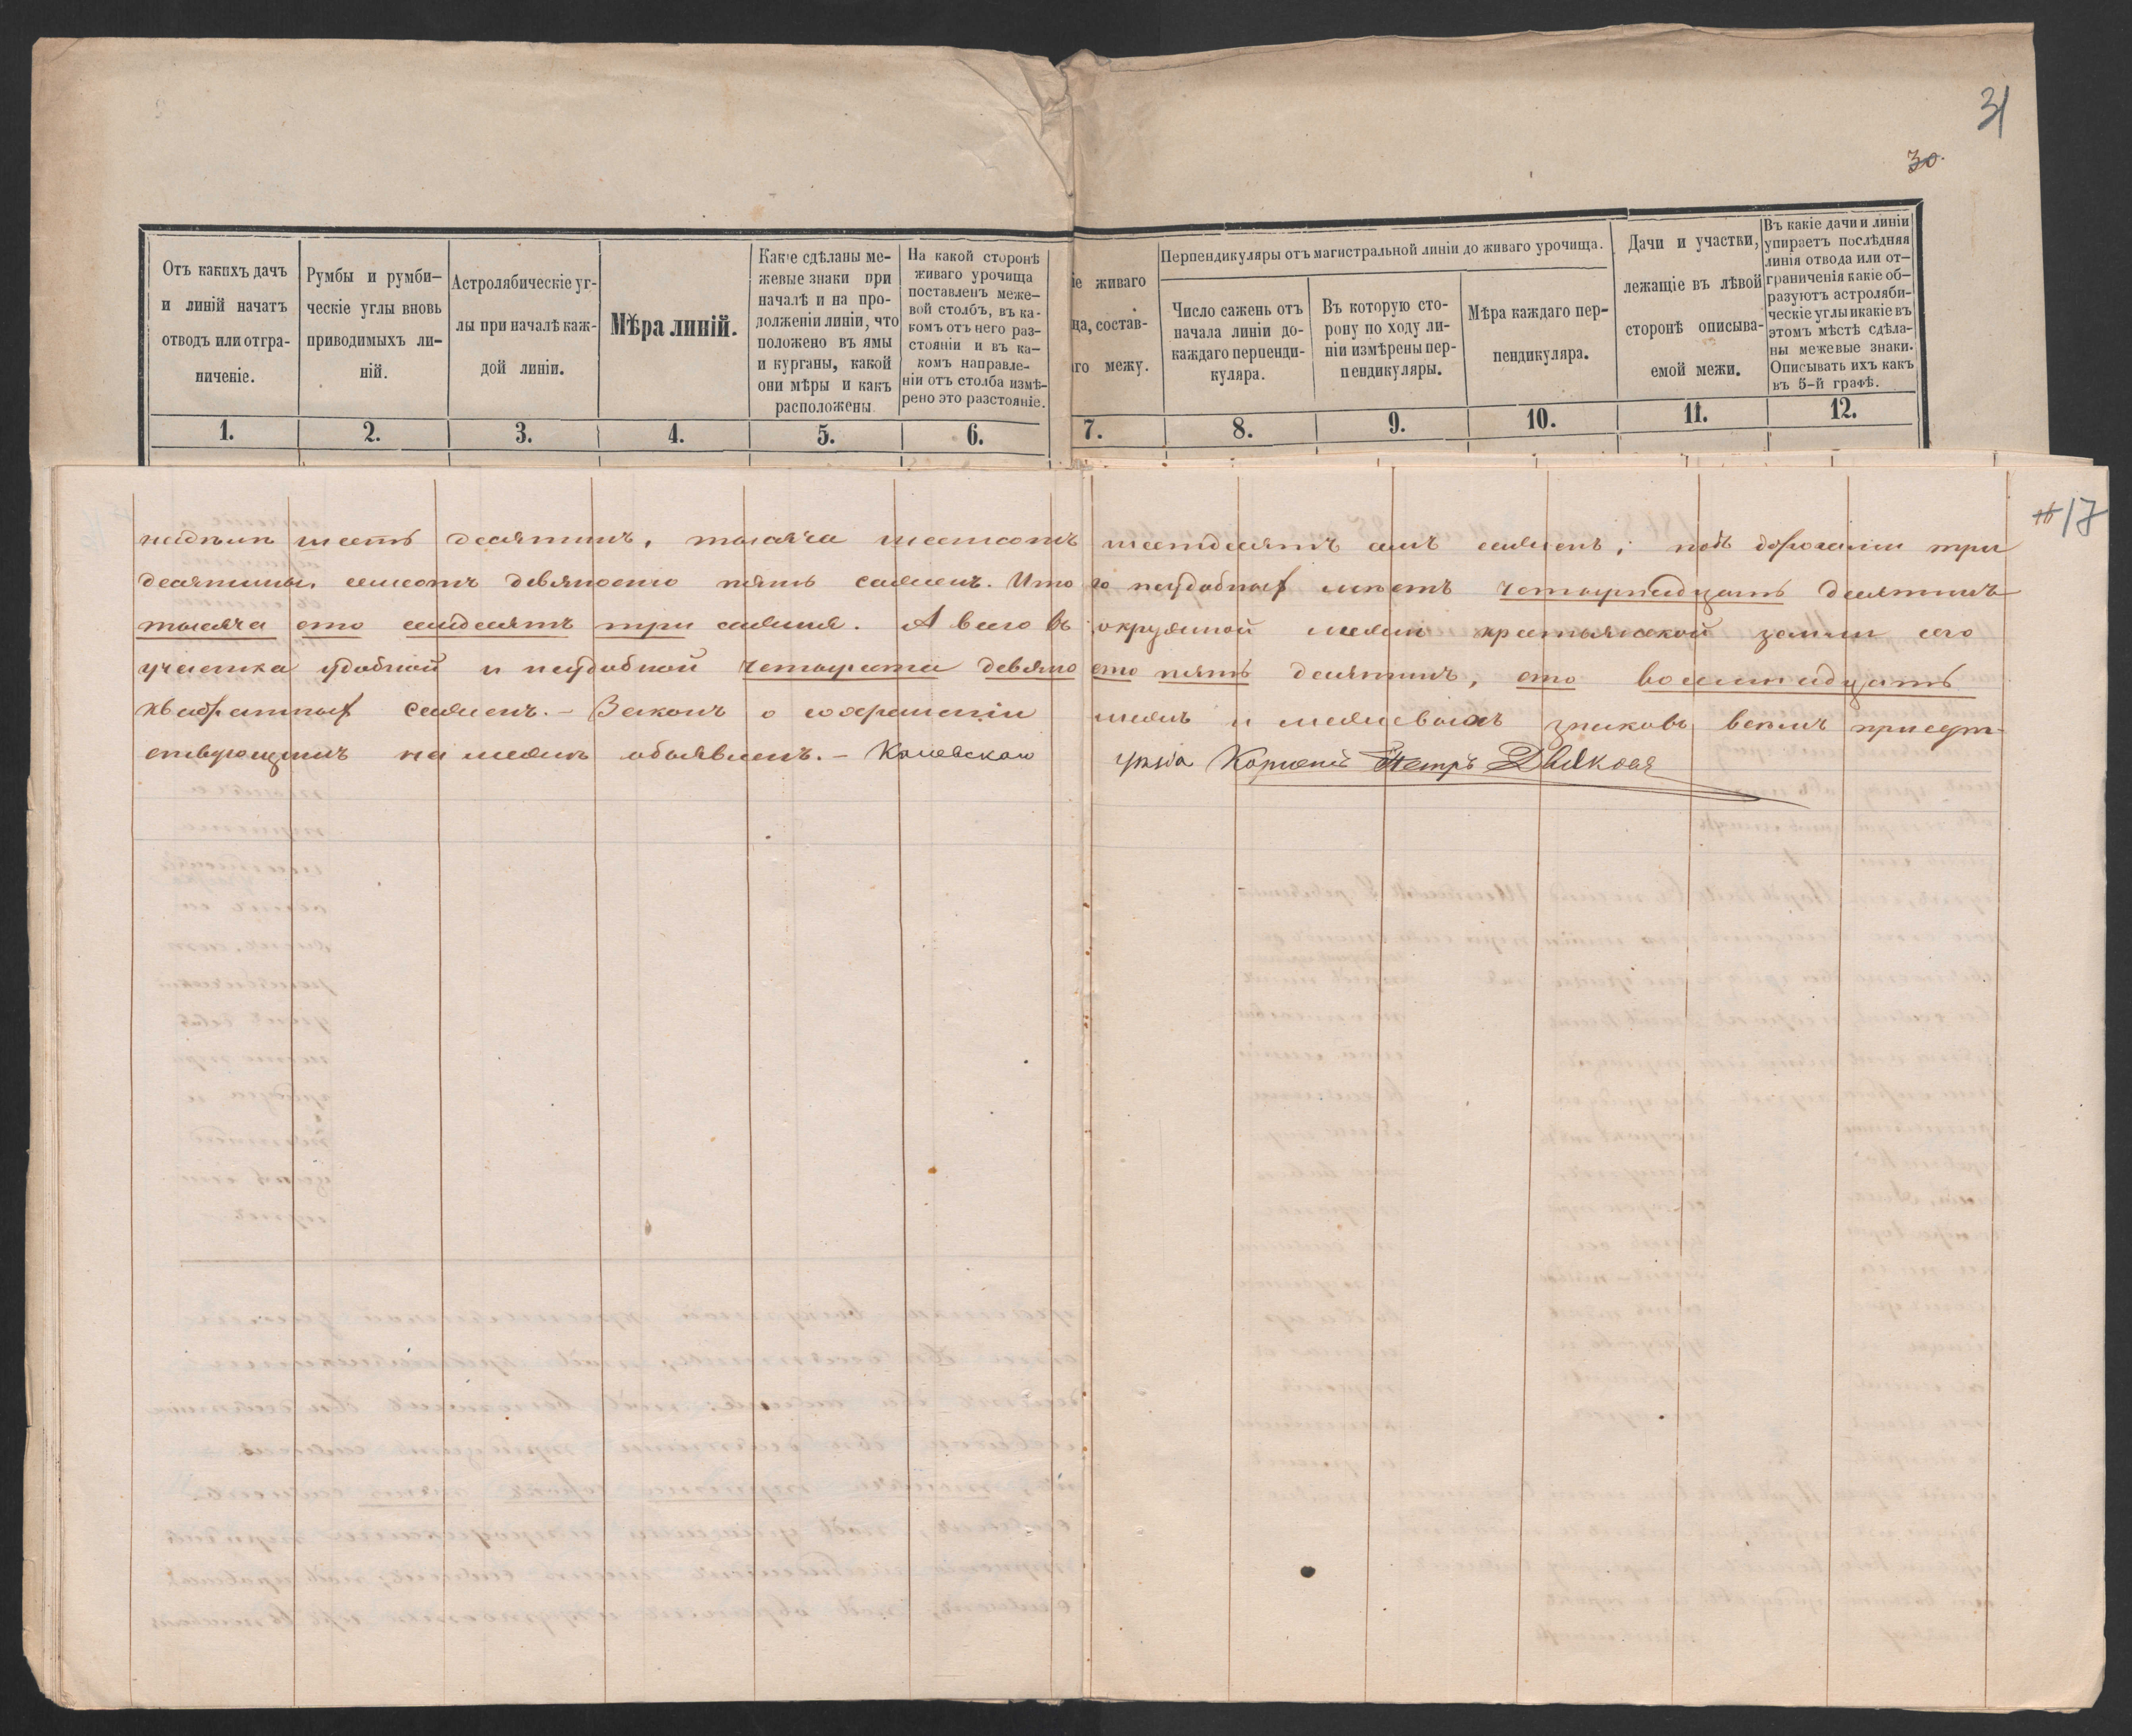 31
30.
Отъ какихъ дачъ и линій начатъ отводъ или отграниченіе.
Румбы и румби-
ческіе углы вновь
приводимыхъ ли-
ній.
Астролябическіе уг-
лы при началѣ каж-
дой линіи.
Мѣра линій.
Какіе сдѣланы ме-
жевые знаки при
началѣ и на про-
долженіи линіи, что
положено въ ямы
и курганы, какой
они мѣры и какъ
расположены.
На какой сторонѣ
живаго урочища
поставленъ меже-
вой столбъ, въ ка-
комъ отъ него раз-
стояніи и въ ка-
комъ направле-
ніи отъ столба измѣ-
рено это разстояніе.
іе живаго
ща, состав-
го межу.
Перпендикуляры отъ магистральной линіи до живаго урочища.
Число сажень отъ
начала линіи до-
каждаго перпенди-
куляра.
Въ которую сто-
рону по ходу ли-
ніи измѣрены пер-
пендикуляры.
Мѣра каждаго пер-
пендикуляра.
Дачи и участки,
лежащіе въ лѣвой
сторонѣ описыва-
емой межи.
Въ какіе дачи и линіи
упираетъ послѣдняя
линія отвода или от-
граниченія какіе об-
разуютъ астроляби-
ческіе углы и какіе въ
этомъ мѣстѣ сдѣла-
ны межевые знаки.
Описывать ихъ какъ
въ 5-й графѣ.
1. 2. 3. 4. 5. 6. 7. 8. 9. 10. 11. 12.
17
шесть десятинъ, тысяча шестьсотъ шестдесятъ сажень; подъ дорогами три
десятины, семсотъ девяносто пять сажень. Итого неудобныхъ мѣстъ четырнадцать десятинъ
тысяча сто семдесятъ три сажня. А всего въ окружной межи крестьянской земли сего
участка удобной и неудобной четыреста девяносто пять десятинъ, сто восемнадцать
квадратныхъ сажень. – Законъ о сохраненіи межъ и межевыхъ знаковъ всѣмъ присут-
ствующимъ на межѣ объявленъ. – уѣзда Петръ